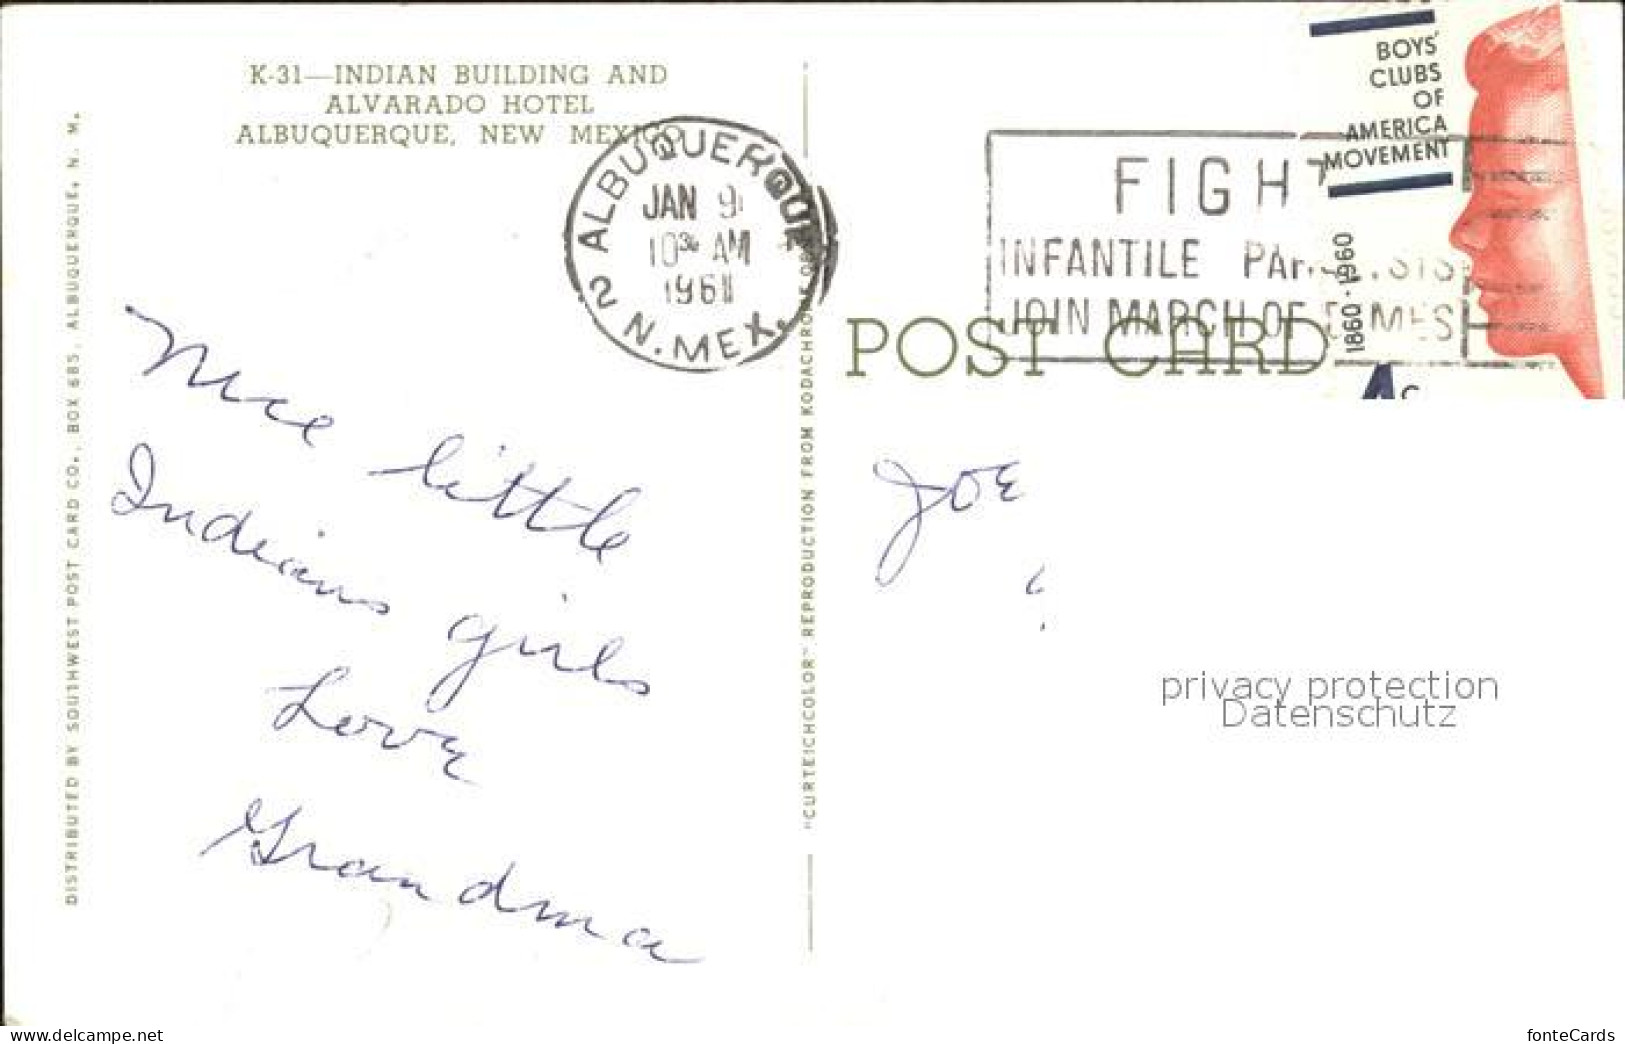 K-31—INDIAN BUILDING AND
ALVARADO HOTEL
ALBUQUERQUE, NEW MEXICO
DISTRIBUTED BY SOUTHWEST POST CARD CO., BOX 685, ALBUQUERQUE, N. M.
Nice little
Indians girls
Love
Grandma
ALBUQUERQUE
JAN 9
10 30 AM
1961
2 N. MEX.
"CURTEICHCOLOR" REPRODUCTION FROM KODACHROME
BOYS'
CLUBS
OF
AMERICA
MOVEMENT
1860·1960
4c
FIGHT
INFANTILE
JOIN MARCH OF DIMES
POST CARD
Joe
privacy protection
Datenschutz
www.delcampe.net
fonteCards